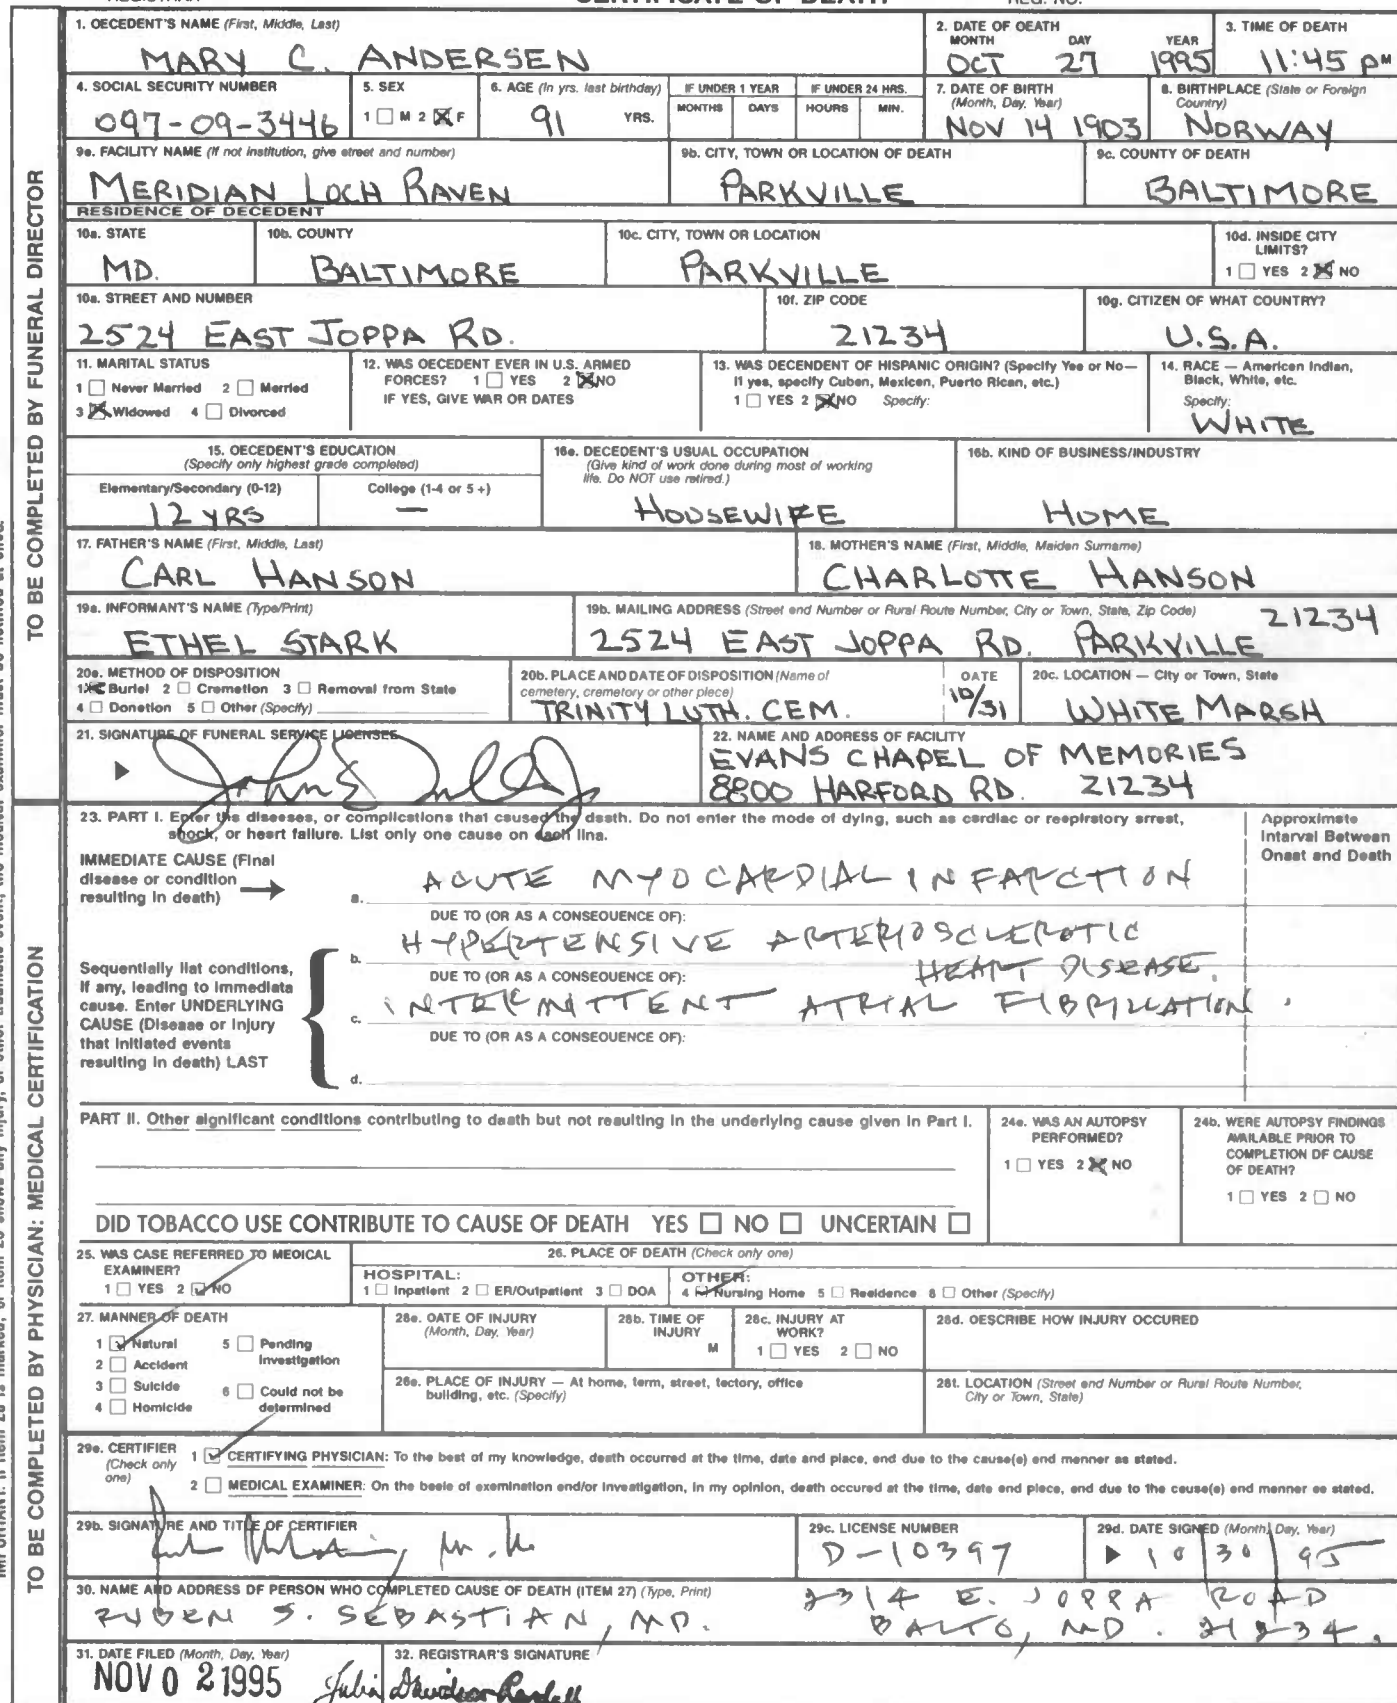 CERTIFICATE OF DEATH
1. DECEDENT'S NAME (First, Middle, Last)
MARY C. ANDERSEN
2. DATE OF DEATH
MONTH DAY YEAR
OCT 27 1995
3. TIME OF DEATH
11:45 PM
4. SOCIAL SECURITY NUMBER
097-09-3446
5. SEX
1 ☐ M 2 ☒ F
6. AGE (In yrs. last birthday)
91 YRS.
IF UNDER 1 YEAR
MONTHS DAYS
IF UNDER 24 HRS.
HOURS MIN.
7. DATE OF BIRTH
(Month, Day, Year)
NOV 14 1903
8. BIRTHPLACE (State or Foreign
Country)
NORWAY
9a. FACILITY NAME (If not institution, give street and number)
MERIDIAN LOCH RAVEN
9b. CITY, TOWN OR LOCATION OF DEATH
PARKVILLE
9c. COUNTY OF DEATH
BALTIMORE
RESIDENCE OF DECEDENT
10a. STATE
MD.
10b. COUNTY
BALTIMORE
10c. CITY, TOWN OR LOCATION
PARKVILLE
10d. INSIDE CITY
LIMITS?
1 ☐ YES 2 ☒ NO
10e. STREET AND NUMBER
2524 EAST JOPPA RD.
10f. ZIP CODE
21234
10g. CITIZEN OF WHAT COUNTRY?
U.S.A.
11. MARITAL STATUS
1 ☐ Never Married 2 ☐ Married
3 ☒ Widowed 4 ☐ Divorced
12. WAS DECEDENT EVER IN U.S. ARMED
FORCES? 1 ☐ YES 2 ☒ NO
IF YES, GIVE WAR OR DATES
13. WAS DECENDENT OF HISPANIC ORIGIN? (Specify Yes or No—
If yes, specify Cuban, Mexican, Puerto Rican, etc.)
1 ☐ YES 2 ☒ NO Specify:
14. RACE — American Indian,
Black, White, etc.
Specify:
WHITE
15. DECEDENT'S EDUCATION
(Specify only highest grade completed)
Elementary/Secondary (0-12) College (1-4 or 5+)
12 YRS —
16a. DECEDENT'S USUAL OCCUPATION
(Give kind of work done during most of working
life. Do NOT use retired.)
HOUSEWIFE
16b. KIND OF BUSINESS/INDUSTRY
HOME
17. FATHER'S NAME (First, Middle, Last)
CARL HANSON
18. MOTHER'S NAME (First, Middle, Maiden Surname)
CHARLOTTE HANSON
19a. INFORMANT'S NAME (Type/Print)
ETHEL STARK
19b. MAILING ADDRESS (Street and Number or Rural Route Number, City or Town, State, Zip Code)
2524 EAST JOPPA RD. PARKVILLE 21234
20a. METHOD OF DISPOSITION
1 ☒ Burial 2 ☐ Cremation 3 ☐ Removal from State
4 ☐ Donation 5 ☐ Other (Specify)
20b. PLACE AND DATE OF DISPOSITION (Name of
cemetery, crematory or other place)
TRINITY LUTH. CEM.
DATE
10/31
20c. LOCATION — City or Town, State
WHITE MARSH
21. SIGNATURE OF FUNERAL SERVICE LICENSEE
22. NAME AND ADDRESS OF FACILITY
EVANS CHAPEL OF MEMORIES
8800 HARFORD RD. 21234
23. PART I. Enter the diseases, or complications that caused the death. Do not enter the mode of dying, such as cardiac or respiratory arrest,
shock, or heart failure. List only one cause on each line.
Approximate
Interval Between
Onset and Death
IMMEDIATE CAUSE (Final
disease or condition
resulting in death)
a. ACUTE MYOCARDIAL INFARCTION
DUE TO (OR AS A CONSEQUENCE OF):
b. HYPERTENSIVE ARTERIOSCLEROTIC
HEART DISEASE.
DUE TO (OR AS A CONSEQUENCE OF):
c. INTERMITTENT ATRIAL FIBRILLATION.
DUE TO (OR AS A CONSEQUENCE OF):
d.
Sequentially list conditions,
if any, leading to immediate
cause. Enter UNDERLYING
CAUSE (Disease or injury
that initiated events
resulting in death) LAST
PART II. Other significant conditions contributing to death but not resulting in the underlying cause given in Part I.
24a. WAS AN AUTOPSY
PERFORMED?
1 ☐ YES 2 ☒ NO
24b. WERE AUTOPSY FINDINGS
AVAILABLE PRIOR TO
COMPLETION OF CAUSE
OF DEATH?
1 ☐ YES 2 ☐ NO
DID TOBACCO USE CONTRIBUTE TO CAUSE OF DEATH YES ☐ NO ☐ UNCERTAIN ☐
25. WAS CASE REFERRED TO MEDICAL
EXAMINER?
1 ☐ YES 2 ☑ NO
26. PLACE OF DEATH (Check only one)
HOSPITAL:
1 ☐ Inpatient 2 ☐ ER/Outpatient 3 ☐ DOA
OTHER:
4 ☑ Nursing Home 5 ☐ Residence 6 ☐ Other (Specify)
27. MANNER OF DEATH
1 ☑ Natural 5 ☐ Pending
Investigation
2 ☐ Accident
3 ☐ Suicide 6 ☐ Could not be
determined
4 ☐ Homicide
28a. DATE OF INJURY
(Month, Day, Year)
28b. TIME OF
INJURY
M
28c. INJURY AT
WORK?
1 ☐ YES 2 ☐ NO
28d. DESCRIBE HOW INJURY OCCURED
28e. PLACE OF INJURY — At home, farm, street, factory, office
building, etc. (Specify)
28f. LOCATION (Street and Number or Rural Route Number,
City or Town, State)
29a. CERTIFIER
(Check only
one)
1 ☑ CERTIFYING PHYSICIAN: To the best of my knowledge, death occurred at the time, date and place, and due to the cause(s) and manner as stated.
2 ☐ MEDICAL EXAMINER: On the basis of examination and/or investigation, in my opinion, death occured at the time, date and place, and due to the cause(s) and manner as stated.
29b. SIGNATURE AND TITLE OF CERTIFIER
29c. LICENSE NUMBER
D-10397
29d. DATE SIGNED (Month, Day, Year)
10 30 95
30. NAME AND ADDRESS OF PERSON WHO COMPLETED CAUSE OF DEATH (ITEM 27) (Type, Print)
RUBEN S. SEBASTIAN, MD.
2314 E. JOPPA ROAD
BALTO, MD. 21234.
31. DATE FILED (Month, Day, Year)
NOV 02 1995
32. REGISTRAR'S SIGNATURE
TO BE COMPLETED BY FUNERAL DIRECTOR
TO BE COMPLETED BY PHYSICIAN: MEDICAL CERTIFICATION